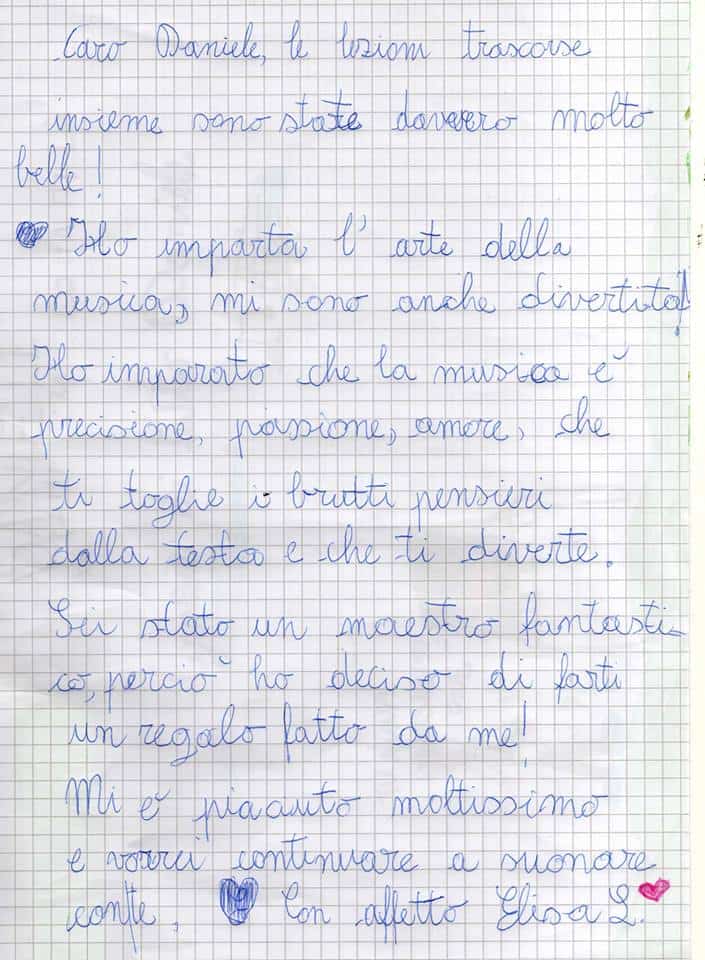 Caro Daniele, le lezioni trascorse
insieme sono state davvero molto
belle!
Ho imparta l' arte della
musica, mi sono anche divertita!
Ho imparato che la musica è
precisione, passione, amore, che
ti toglie i brutti pensieri
dalla testa e che ti diverte.
Sei stato un maestro fantasti-
co, perciò ho deciso di farti
un regalo fatto da me!
Mi è piaciuto moltissimo
e vorrei continuare a suonare
con te. Con affetto Elisa L.